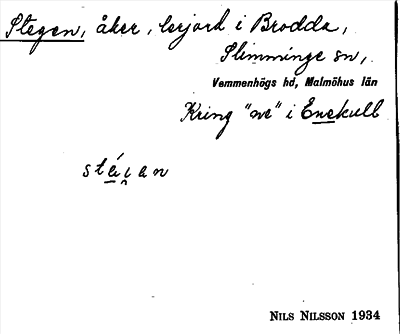 Stegen, åker, lerjord i Brodda,
Slimminge sn,
Vemmenhögs hd, Malmöhus län
Kring "ne" i Enekull
NILS NILSSON 1934